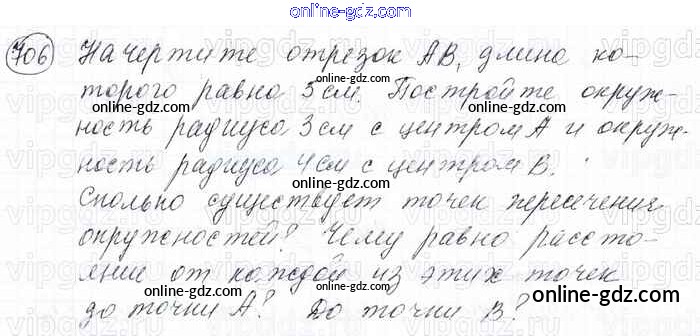 706 Начертите отрезок AB, длина ко-
торого равна 5 см. Постройте окруж-
ность радиуса 3 см с центром A и окруж-
ность радиуса 4 см с центром B.
Сколько существует точек пересечения
окружностей? Чему равно расстоя-
ение от каждой из этих точек
до точки A? До точки B?
online-gdz.com
online-gdz.com
online-gdz.com
online-gdz.com
online-gdz.com
online-gdz.com
online-gdz.com
online-gdz.com